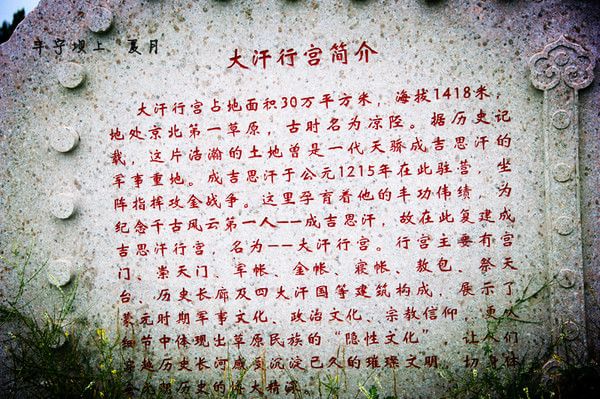 丰宁坝上 夏月
大汗行宫简介
大汗行宫占地面积30万平方米，海拔1418米，
地处京北第一草原，古时名为凉陉。据历史记
载，这片浩瀚的土地曾是一代天骄成吉思汗的
军事重地。成吉思汗于公元1215年在此驻营，坐
阵指挥攻金战争。这里孕育着他的丰功伟绩，为
纪念千古风云第一人——成吉思汗，故在此复建成
吉思汗行宫，名为——大汗行宫。行宫主要有宫
门、崇天门、军帐、金帐、寝帐、敖包、祭天
台、历史长廊及四大汗国等建筑构成，展示了
蒙元时期军事文化、政治文化、宗教信仰，更从
细节中体现出草原民族的“隐性文化”，让人们
穿越历史长河感受沉淀已久的璀璨文明，切身体
会光明历史的博大精深。